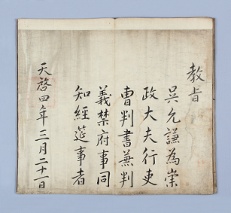 教旨
吳允謙為崇
政大夫行吏
曹判書兼判
義禁府事同
知經筵事者
天啓四年三月二十一日